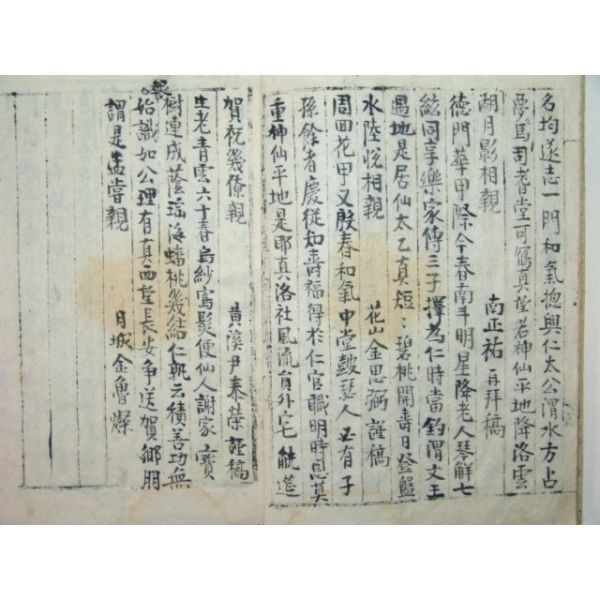 名均遂志一門和氣揔與仁太公渭水方占
夢馬司耆堂可寫真望若神仙平地降洛雲
湖月影相親
南正祐再拜稿
德門華甲際今春南斗明星降老人琴解七
絃同享樂家傳三子擇為仁時當釣渭文王
遇地是居仙太乙真短〻碧桃開壽日登盤
水陸悅相親
花山金思弼謹稿
周回花甲又殷春和氣中堂鼓瑟人必有子
孫餘者慶從知壽福得於仁官職明時恩莫
重神仙平地是耶真洛社風流員外宅能造
賀祝幾僚親
黃溪尹泰榮謹稿
生老青雲六十春烏紗寫髮便仙人謝家寶
樹連成蔭瑤海蟠桃幾結仁孰云積善功無
始識如公理有真西望長安爭送賀鄉朋
謂是孟嘗親
月城金魯燦